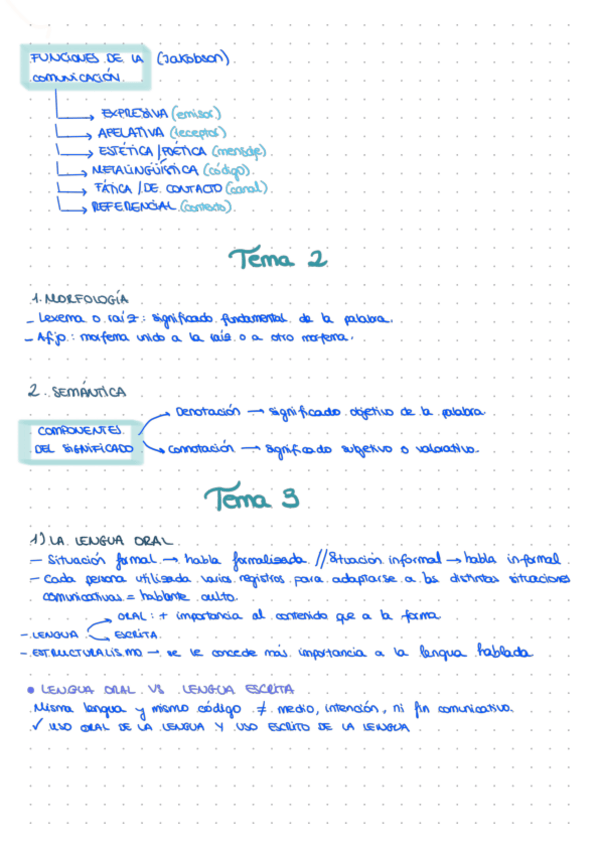 FUNCIONES DE LA (Jakobson)
COMUNICACIÓN
EXPRESIVA (emisor)
APELATIVA (receptor)
ESTÉTICA / POÉTICA (mensaje)
METALINGÜÍSTICA (código)
FÁTICA / DE CONTACTO (canal)
REFERENCIAL (contexto)
Tema 2
1. MORFOLOGÍA
- Lexema o raíz: significado fundamental de la palabra.
- Afijo: morfema unido a la raíz o a otro morfema.
2. SEMÁNTICA
Denotación → significado objetivo de la palabra
COMPONENTES
DEL SIGNIFICADO
Connotación → significado subjetivo o valorativo.
Tema 3
1) LA LENGUA ORAL
- Situación formal → habla formalizada // Situación informal → habla informal
- Cada persona utilizada varios registros para adaptarse a las distintas situaciones
comunicativas = hablante culto.
ORAL: + importancia al contenido que a la forma
- LENGUA
ESCRITA
- ESTRUCTURALISMO → se le concede más importancia a la lengua hablada
• LENGUA ORAL VS LENGUA ESCRITA
Misma lengua y mismo código ≠ medio, intención, ni fin comunicativo.
✓ USO ORAL DE LA LENGUA Y USO ESCRITO DE LA LENGUA